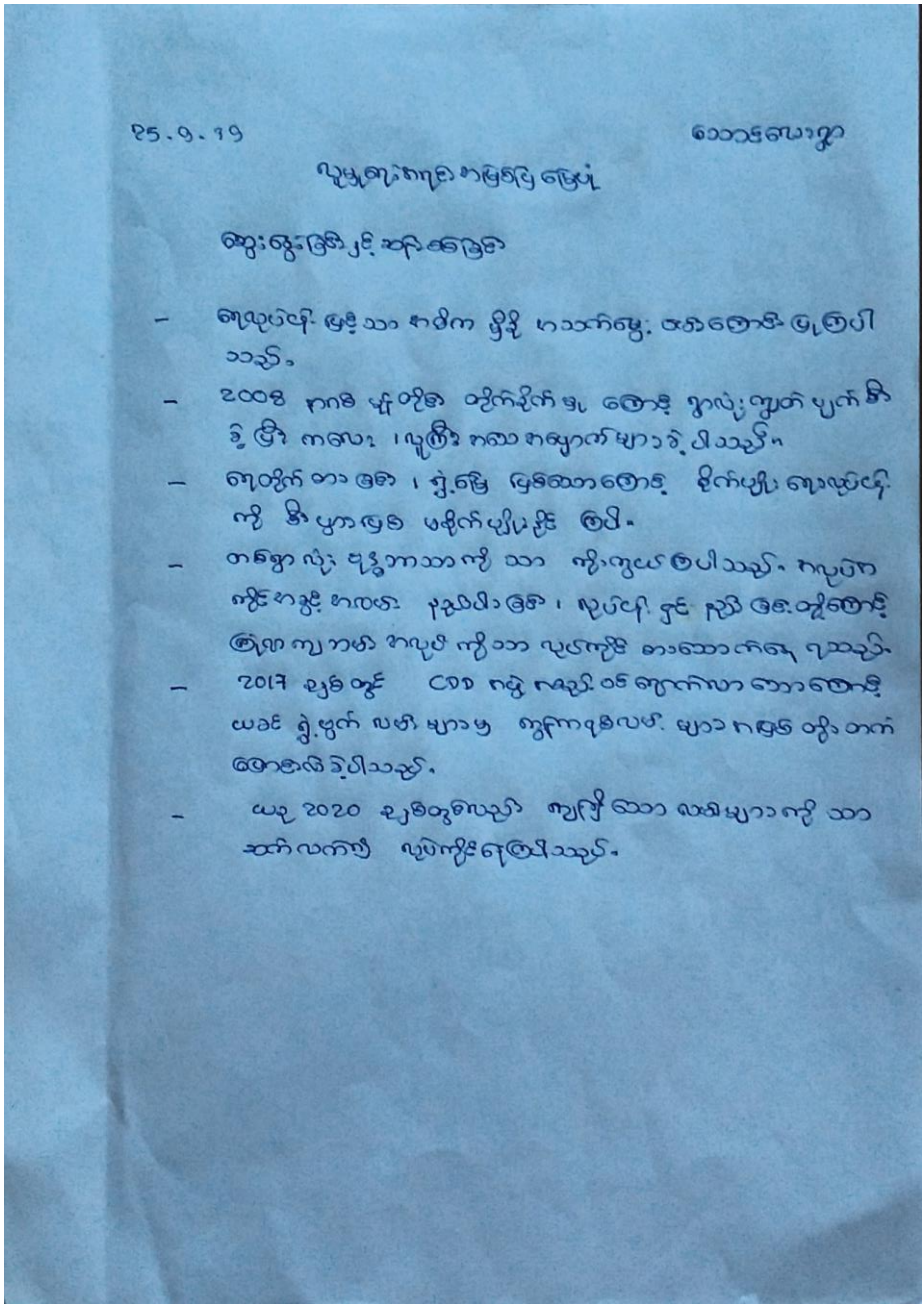 25.9.19 သောင်လေးရွာ
လူမှုရေးအရအခြေပြမြေပုံ
ဆွေးနွေးခြင်းနှင့်ဆန်းစစ်ခြင်း
- ရေလုပ်ငန်း ဖြင့်သာ အဓိက မှီခို အသက်မွေး ဝမ်းကြောင်း ပြုကြပါ
သည်။
- 2008 နာဂစ် မုန်တိုင်း တိုက်ခိုက်မှု ကြောင့် ရွာလုံးကျွတ် ပျက်စီး
ခဲ့ပြီး ကလေး ၊ လူကြီး အသေအပျောက်များခဲ့ပါသည်။
- ရေတိုက်စားခြင်း ၊ နွံမြေ ဖြစ်သောကြောင့် စိုက်ပျိုးရေးလုပ်ငန်း
ကို စီးပွားဖြစ် မစိုက်ပျိုးနိုင် ကြပါ။
- တစ်ရွာလုံး ဗုဒ္ဓဘာသာကို သာ ကိုးကွယ်ကြပါသည်။ အလုပ်အ
ကိုင်အခွင့်အလမ်း နည်းပါးခြင်း ၊ လုပ်ငန်းရှင် နည်းခြင်းတို့ကြောင့်
ကြုံရာကျဘမ်း အလုပ်ကိုသာ လုပ်ကိုင် စားသောက်နေရသည်။
- 2017 ခုနှစ်တွင် CDD အဖွဲ့အစည်း ဝင်ရောက်လာသောကြောင့်
ယခင် ရွှံ့ဗွက် လမ်းများမှ ကွန်ကရစ်လမ်း များအဖြစ် တိုးတက်
ပြောင်းလဲခဲ့ပါသည်။
- ယခု 2020 ခုနှစ်တွင်လည်း ကျန်ရှိသော လမ်းများကို သာ
ဆက်လက်၍ လုပ်ကိုင်ရကြပါသည်။